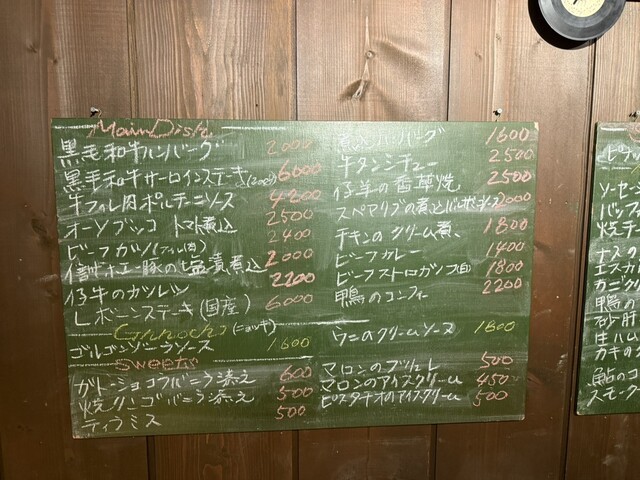 Main Dish
黒毛和牛ハンバーグ 2000
黒毛和牛サーロインステーキ(200g) 6000
牛フィレ肉ポルチーニソース 4200
オーソブッコ トマト煮込 2500
ビーフカツ(フィレ肉) 2400
豚の塩漬煮込 2000
仔牛のカツレツ 2200
Lボーンステーキ(国産) 6000
煮込ハンバーグ 1600
牛タンシチュー 2500
仔羊の香草焼 2500
スペアリブの煮込バルサミコソース 2000
チキンのクリーム煮 1800
ビーフカレー 1400
ビーフストロガノフ 1800
鴨のコンフィー 2200
Gnocchi (ニョッキ)
ゴルゴンゾーラソース 1600
ウニのクリームソース 1800
Sweets
ガトーショコラバニラ添え 600
焼リンゴバニラ添え 500
ティラミス 500
マロンのブリュレ 500
マロンのアイスクリーム 450
ピスタチオのアイスクリーム 500
ソーセー
バッファ
焼チー
ナスの
エスカル
カニクリ
鴨の
砂肝
生ハム
カキの
鮎のコ
スモーク